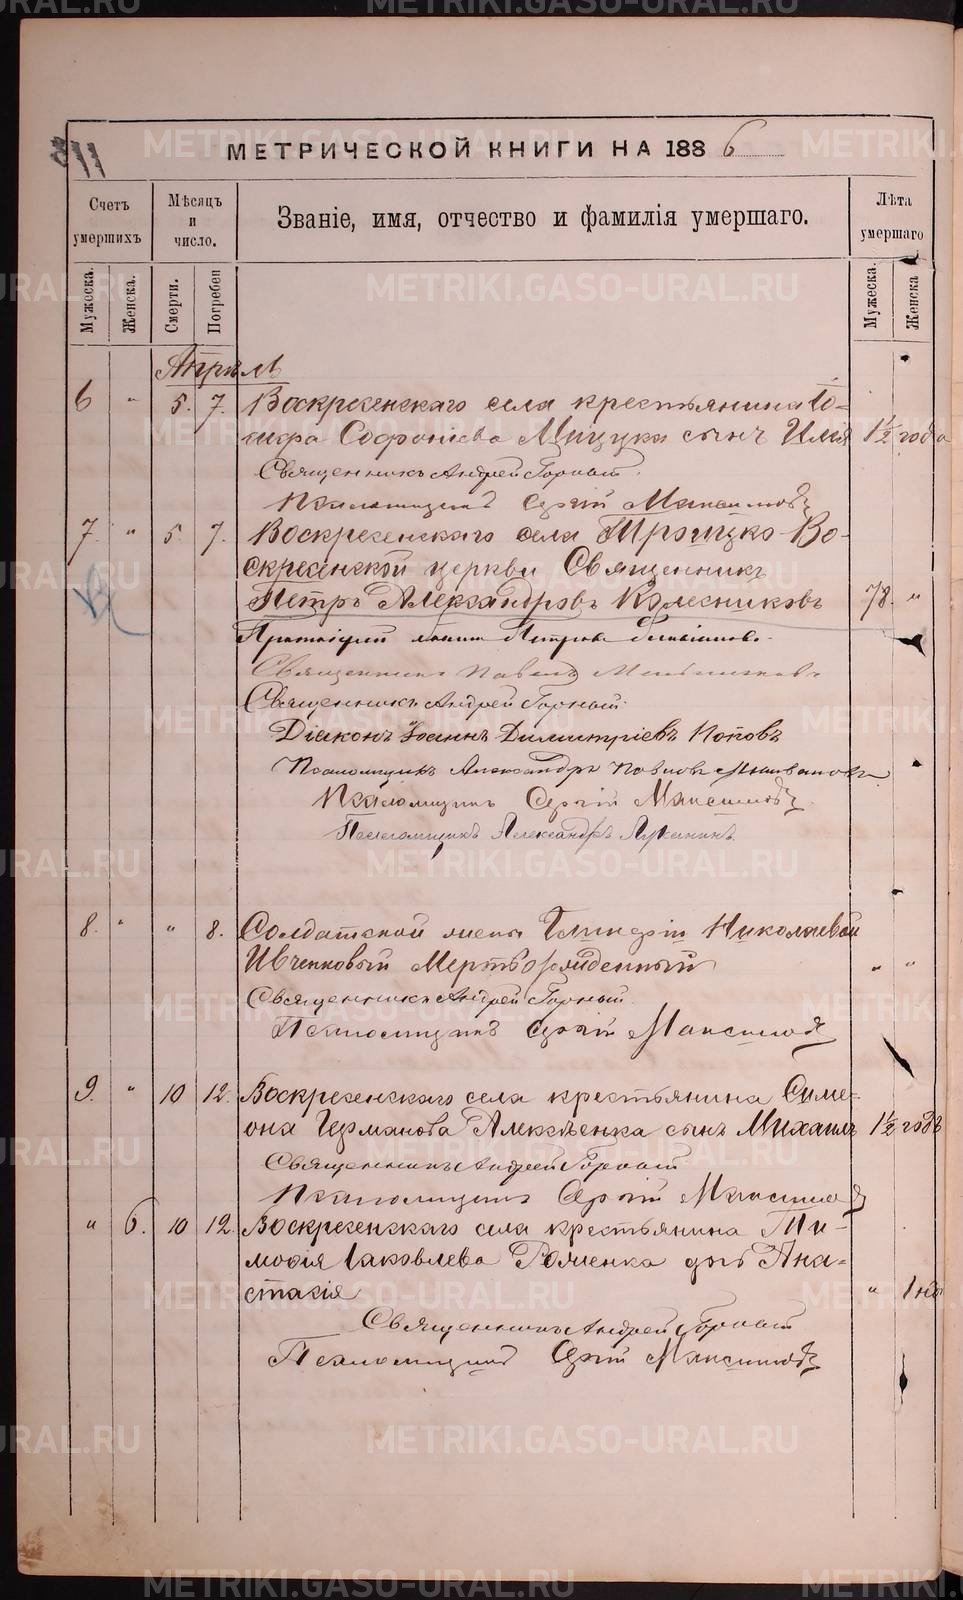 МЕТРИЧЕСКОЙ КНИГИ НА 1886
Счетъ умершихъ
Мѣсяцъ и число.
Званіе, имя, отчество и фамилія умершаго.
Лѣта умершаго
Мужеска.
Женска.
Смерти.
Погребен
Мужеска.
Женска
Апрѣль
6 " 5. 7. Воскресенскаго села крестьянина Іо-
сифа Софоніева Мицука сынъ Илія 1½ года
Священникъ Андрей Горный
Псаломщикъ Сергій Максимовъ
7. " 5 7. Воскресенскаго села Троицко-Во-
скресенской церкви Священникъ
Петръ Александровъ Колесниковъ 78. "
Протоіерей Петровъ
Священникъ Павелъ Мельниковъ
Священникъ Андрей Горный
Діаконъ Іоаннъ Димитріевъ Поповъ
Псаломщикъ Александръ Павловъ
Псаломщикъ Сергій Максимовъ
Псаломщикъ Александръ
8. " " 8. Солдатской жены Николаевой
Ивченковый Мертворожденный " "
Священникъ Андрей Горный
Псаломщикъ Сергій Максимовъ
9. " 10 12. Воскресенскаго села крестьянина Симе-
она Германова Алексѣенка сынъ Михаилъ 1½ годъ
Священникъ Андрей Горный
Псаломщикъ Сергій Максимовъ
" 6. 10 12. Воскресенскаго села крестьянина Ти-
мофія Іаковлева дочь Ана-
стасія " 1 нед
Священникъ Андрей Горный
Псаломщикъ Сергій Максимовъ
METRIKI.GASO-URAL.RU